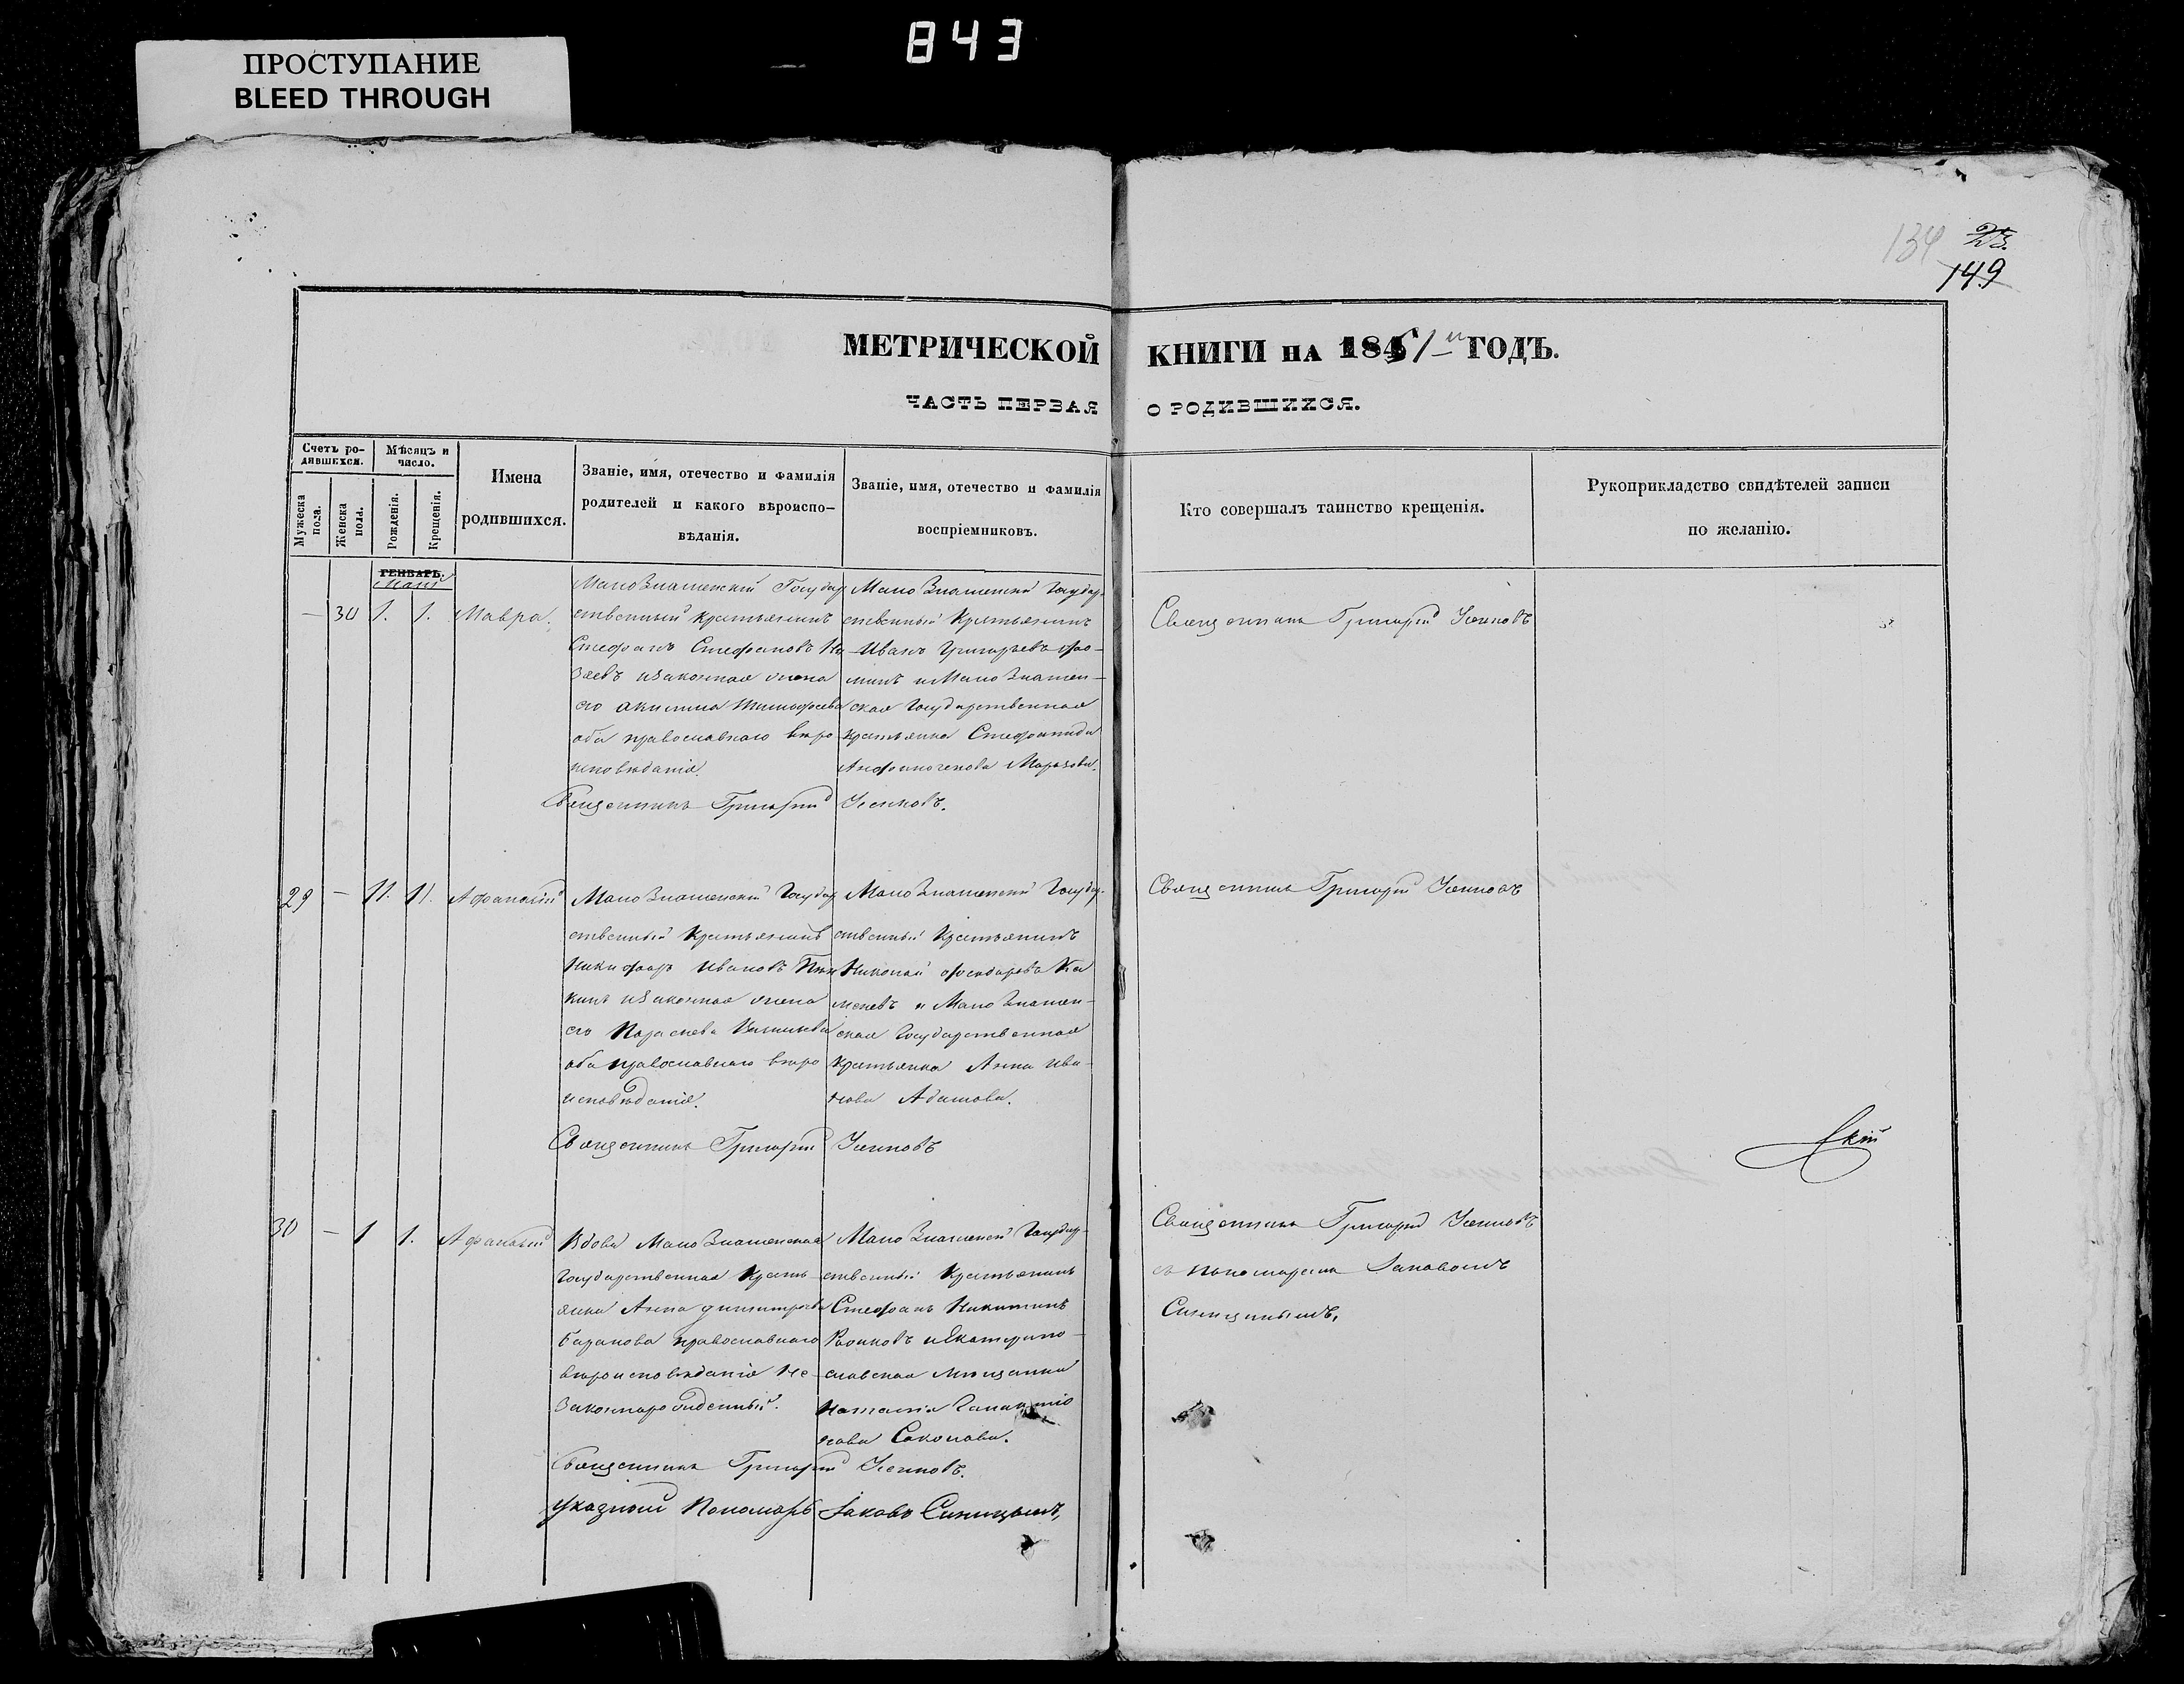 843
ПРОСТУПАНИЕ
BLEED THROUGH
134 23.
149
МЕТРИЧЕСКОЙ КНИГИ НА 1851-й ГОДЪ.
ЧАСТЬ ПЕРВАЯ О РОДИВШИХСЯ.
Счетъ ро-
дившихся.
Мѣсяцъ и
число.
Мужеска
пола.
Женска
пола.
Рожденія.
Крещенія.
Имена
родившихся.
Званіе, имя, отечество и фамилія
родителей и какого вѣроиспо-
вѣданія.
Званіе, имя, отечество и фамилія
воспріемниковъ.
Кто совершалъ таинство крещенія.
Рукоприкладство свидѣтелей записи
по желанію.
ГЕНВАРЬ.
Маій
— 30 1. 1. Мавра.
Мало Знаменскій Государ
ственный крестьянинъ
Стефанъ Стефановъ
заевъ изаконная жена
его акилина Тимофеева
оба православнаго вѣро
исповѣданія.
Мало Знаменскій Государ
ственный Крестьянинъ
Иванъ Григорьевъ Фо-
минъ и Мало Знамен-
ская Государственная
крестьянка Стефанида
Морозова.
Священникъ Григорій
Священникъ Григорій
29 — 11. 11. Афанасій
Мало Знаменскій Государ
ственный Крестьянинъ
Никифоръ Ивановъ
кинъ изаконная жена
его Параскева
оба православнаго вѣро
исповѣданія.
Мало Знаменскій Государ-
ственный Крестьянинъ
Николай Феодоровъ Ка
меневъ и Мало Знамен-
ская Государственная
Крестьянка Анна Ива-
нова Адамова.
Священникъ Григорій
Священникъ Григорій
скій
30 — 1 1. Афанасій
Вдова Мало Знаменская
Государственная Кресть-
янка Анна Димитрова
Баранова православнаго
вѣроисповѣданія Не-
законнорожденный.
Мало Знаменскій Государ-
ственный Крестьянинъ
Стефанъ Никитинъ
и Екатерино-
славская мѣщанка
Наталія
нова Соколова.
Священникъ Григорій
съ пономаремъ Іаковомъ
Синицынымъ,
Священникъ Григорій
указный Пономарь Іаковъ Синицынъ,